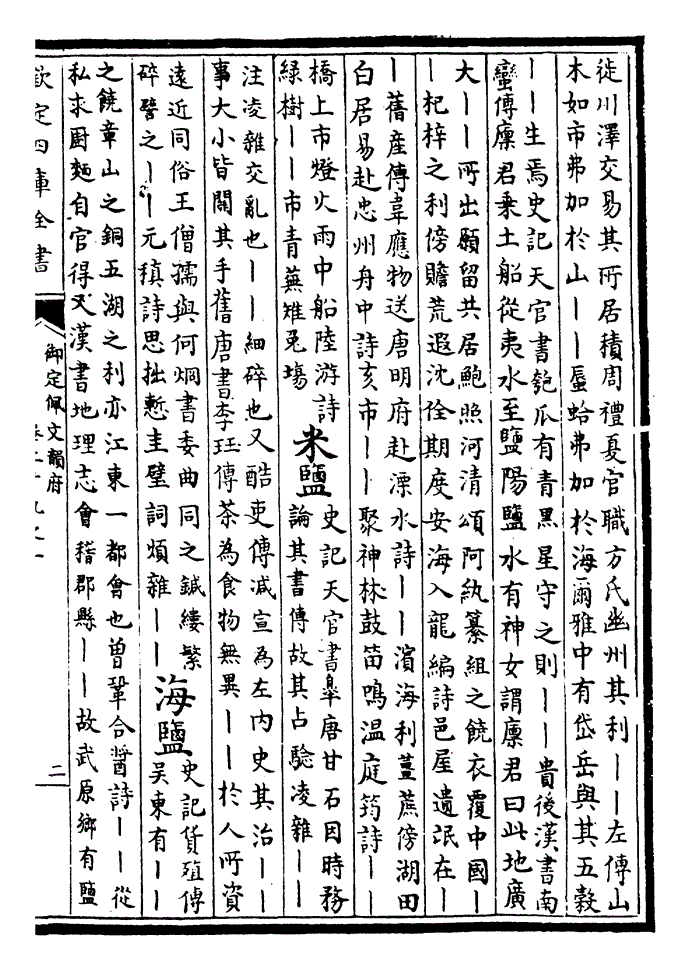 徙川澤交易其所居積周禮夏官職方氏幽州其利丨丨左傳山
木如市弗加於山丨丨蜃蛤弗加於海爾雅中有岱岳與其五穀
丨丨生焉史記天官書匏瓜有青黑星守之則丨丨貴後漢書南
蠻傳廩君乗土船從夷水至鹽陽鹽水有神女謂廩君曰此地廣
大丨丨所出願留共居鮑照河清頌阿紈纂組之饒衣覆中國丨
丨杞梓之利傍贍荒遐沈佺期度安海入龍編詩邑屋遺氓在丨
丨舊產傳韋應物送唐明府赴溧水詩丨丨濱海利薑蔗傍湖田
白居易赴忠州舟中詩亥市丨丨聚神林鼓笛鳴温庭筠詩丨丨
橋上市燈火雨中船陸游詩
緑樹丨丨市青蕪雉兎塲
米鹽
史記天官書臯唐甘石因時務
論其書傳故其占驗凌雜丨丨
注凌雜交亂也丨丨細碎也又酷吏傳減宣為左内史其治丨丨
事大小皆闗其手舊唐書李珏傳茶為食物無異丨丨於人所資
遠近同俗王僧孺與何烱書委曲同之鍼縷繁
碎譬之丨丨元稹詩思拙慙圭璧詞煩雜丨丨
海鹽
史記貨殖傳
吳東有丨丨
之饒章山之銅五湖之利亦江東一都會也曾鞏合醬詩丨丨從
私求厨麵自官得又漢書地理志會稽郡縣丨丨故武原鄉有鹽
欽定四庫全書
御定佩文韻府
卷二十九之一
二